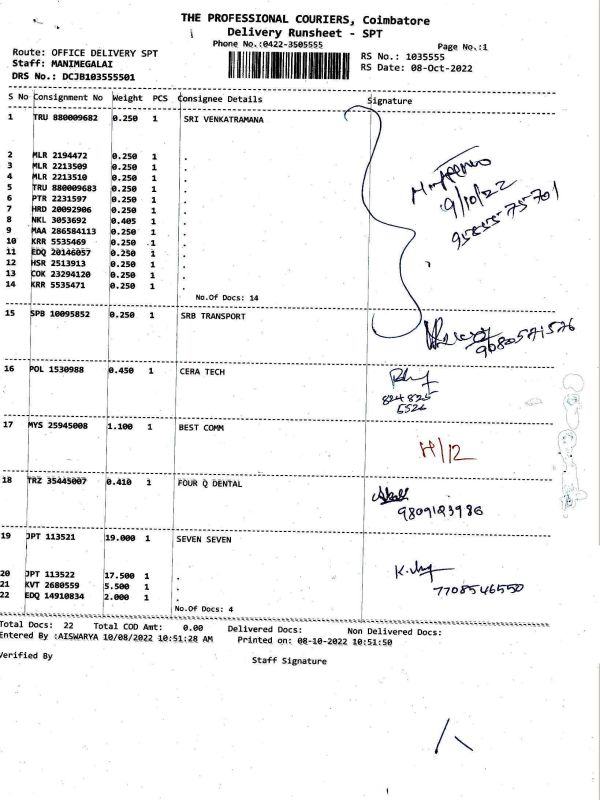 THE PROFESSIONAL COURIERS, Coimbatore
Delivery Runsheet - SPT
Phone No.:0422-3505555
Page No.:1
Route: OFFICE DELIVERY SPT
Staff: MANIMEGALAI
DRS No.: DCJB103555501
RS No.: 1035555
RS Date: 08-Oct-2022
S No Consignment No Weight PCS Consignee Details Signature
1 TRU 880009682 0.250 1 SRI VENKATRAMANA
2 MLR 2194472 0.250 1 .
3 MLR 2213509 0.250 1 .
4 MLR 2213510 0.250 1 .
5 TRU 880009683 0.250 1 .
6 PTR 2231597 0.250 1 .
7 HRD 20092906 0.250 1 .
8 NKL 3053692 0.405 1 .
9 MAA 286584113 0.250 1 .
10 KRR 5535469 0.250 1 .
11 EDQ 20146057 0.250 1 .
12 HSR 2513913 0.250 1 .
13 COK 23294120 0.250 1 .
14 KRR 5535471 0.250 1 .
9/10/22
95855 75701
No.Of Docs: 14
15 SPB 10095852 0.250 1 SRB TRANSPORT
9080571576
16 POL 1530988 0.450 1 CERA TECH
824 825
6526
17 MYS 25945008 1.100 1 BEST COMM
H/12
18 TRZ 35445007 0.410 1 FOUR Q DENTAL
19 JPT 113521 19.000 1 SEVEN SEVEN
20 JPT 113522 17.500 1 .
21 KVT 2680559 5.500 1 .
22 EDQ 14910834 2.000 1 .
7708546550
No.Of Docs: 4
Total Docs: 22 Total COD Amt: 0.00 Delivered Docs: Non Delivered Docs:
Entered By :AISWARYA 10/08/2022 10:51:28 AM Printed on: 08-10-2022 10:51:50
Verified By
Staff Signature